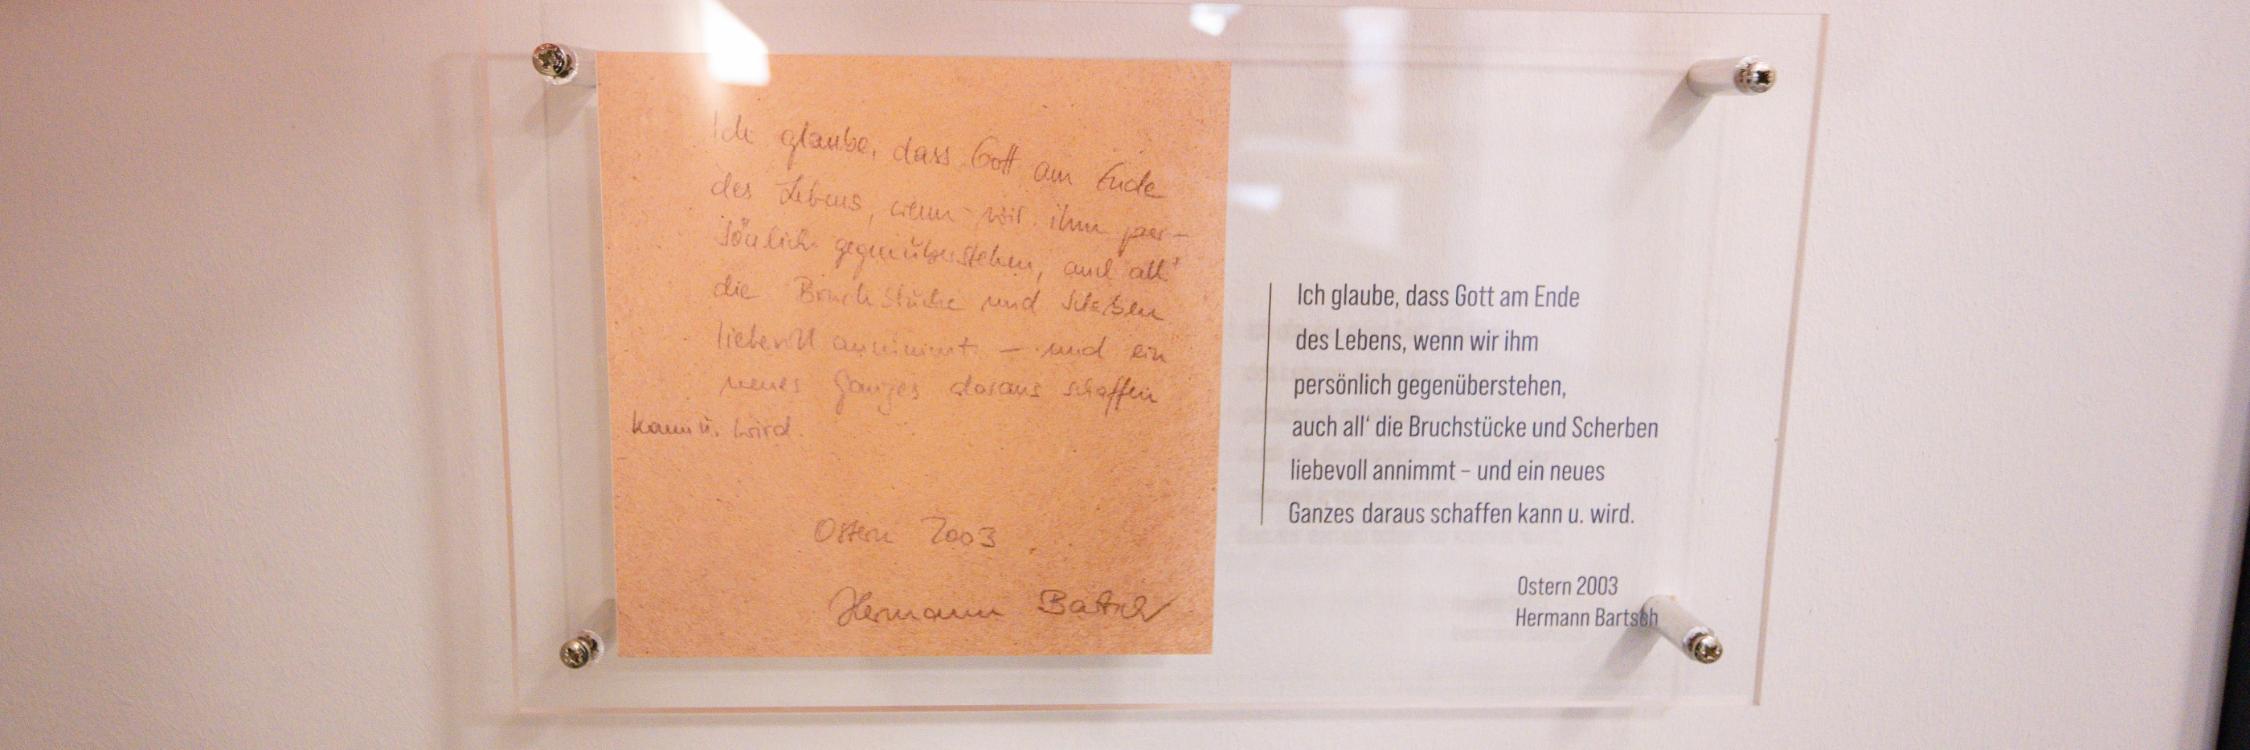 Ich glaube, dass Gott am Ende
des Lebens, wenn wir ihm per-
sönlich gegenüberstehen, auch all'
die Bruchstücke und Scherben
liebevoll annimmt – und ein
neues Ganzes daraus schaffen
kann u. wird.
Ostern 2003
Hermann Bartsch
Ich glaube, dass Gott am Ende
des Lebens, wenn wir ihm
persönlich gegenüberstehen,
auch all‘ die Bruchstücke und Scherben
liebevoll annimmt – und ein neues
Ganzes daraus schaffen kann u. wird.
Ostern 2003
Hermann Bartsch